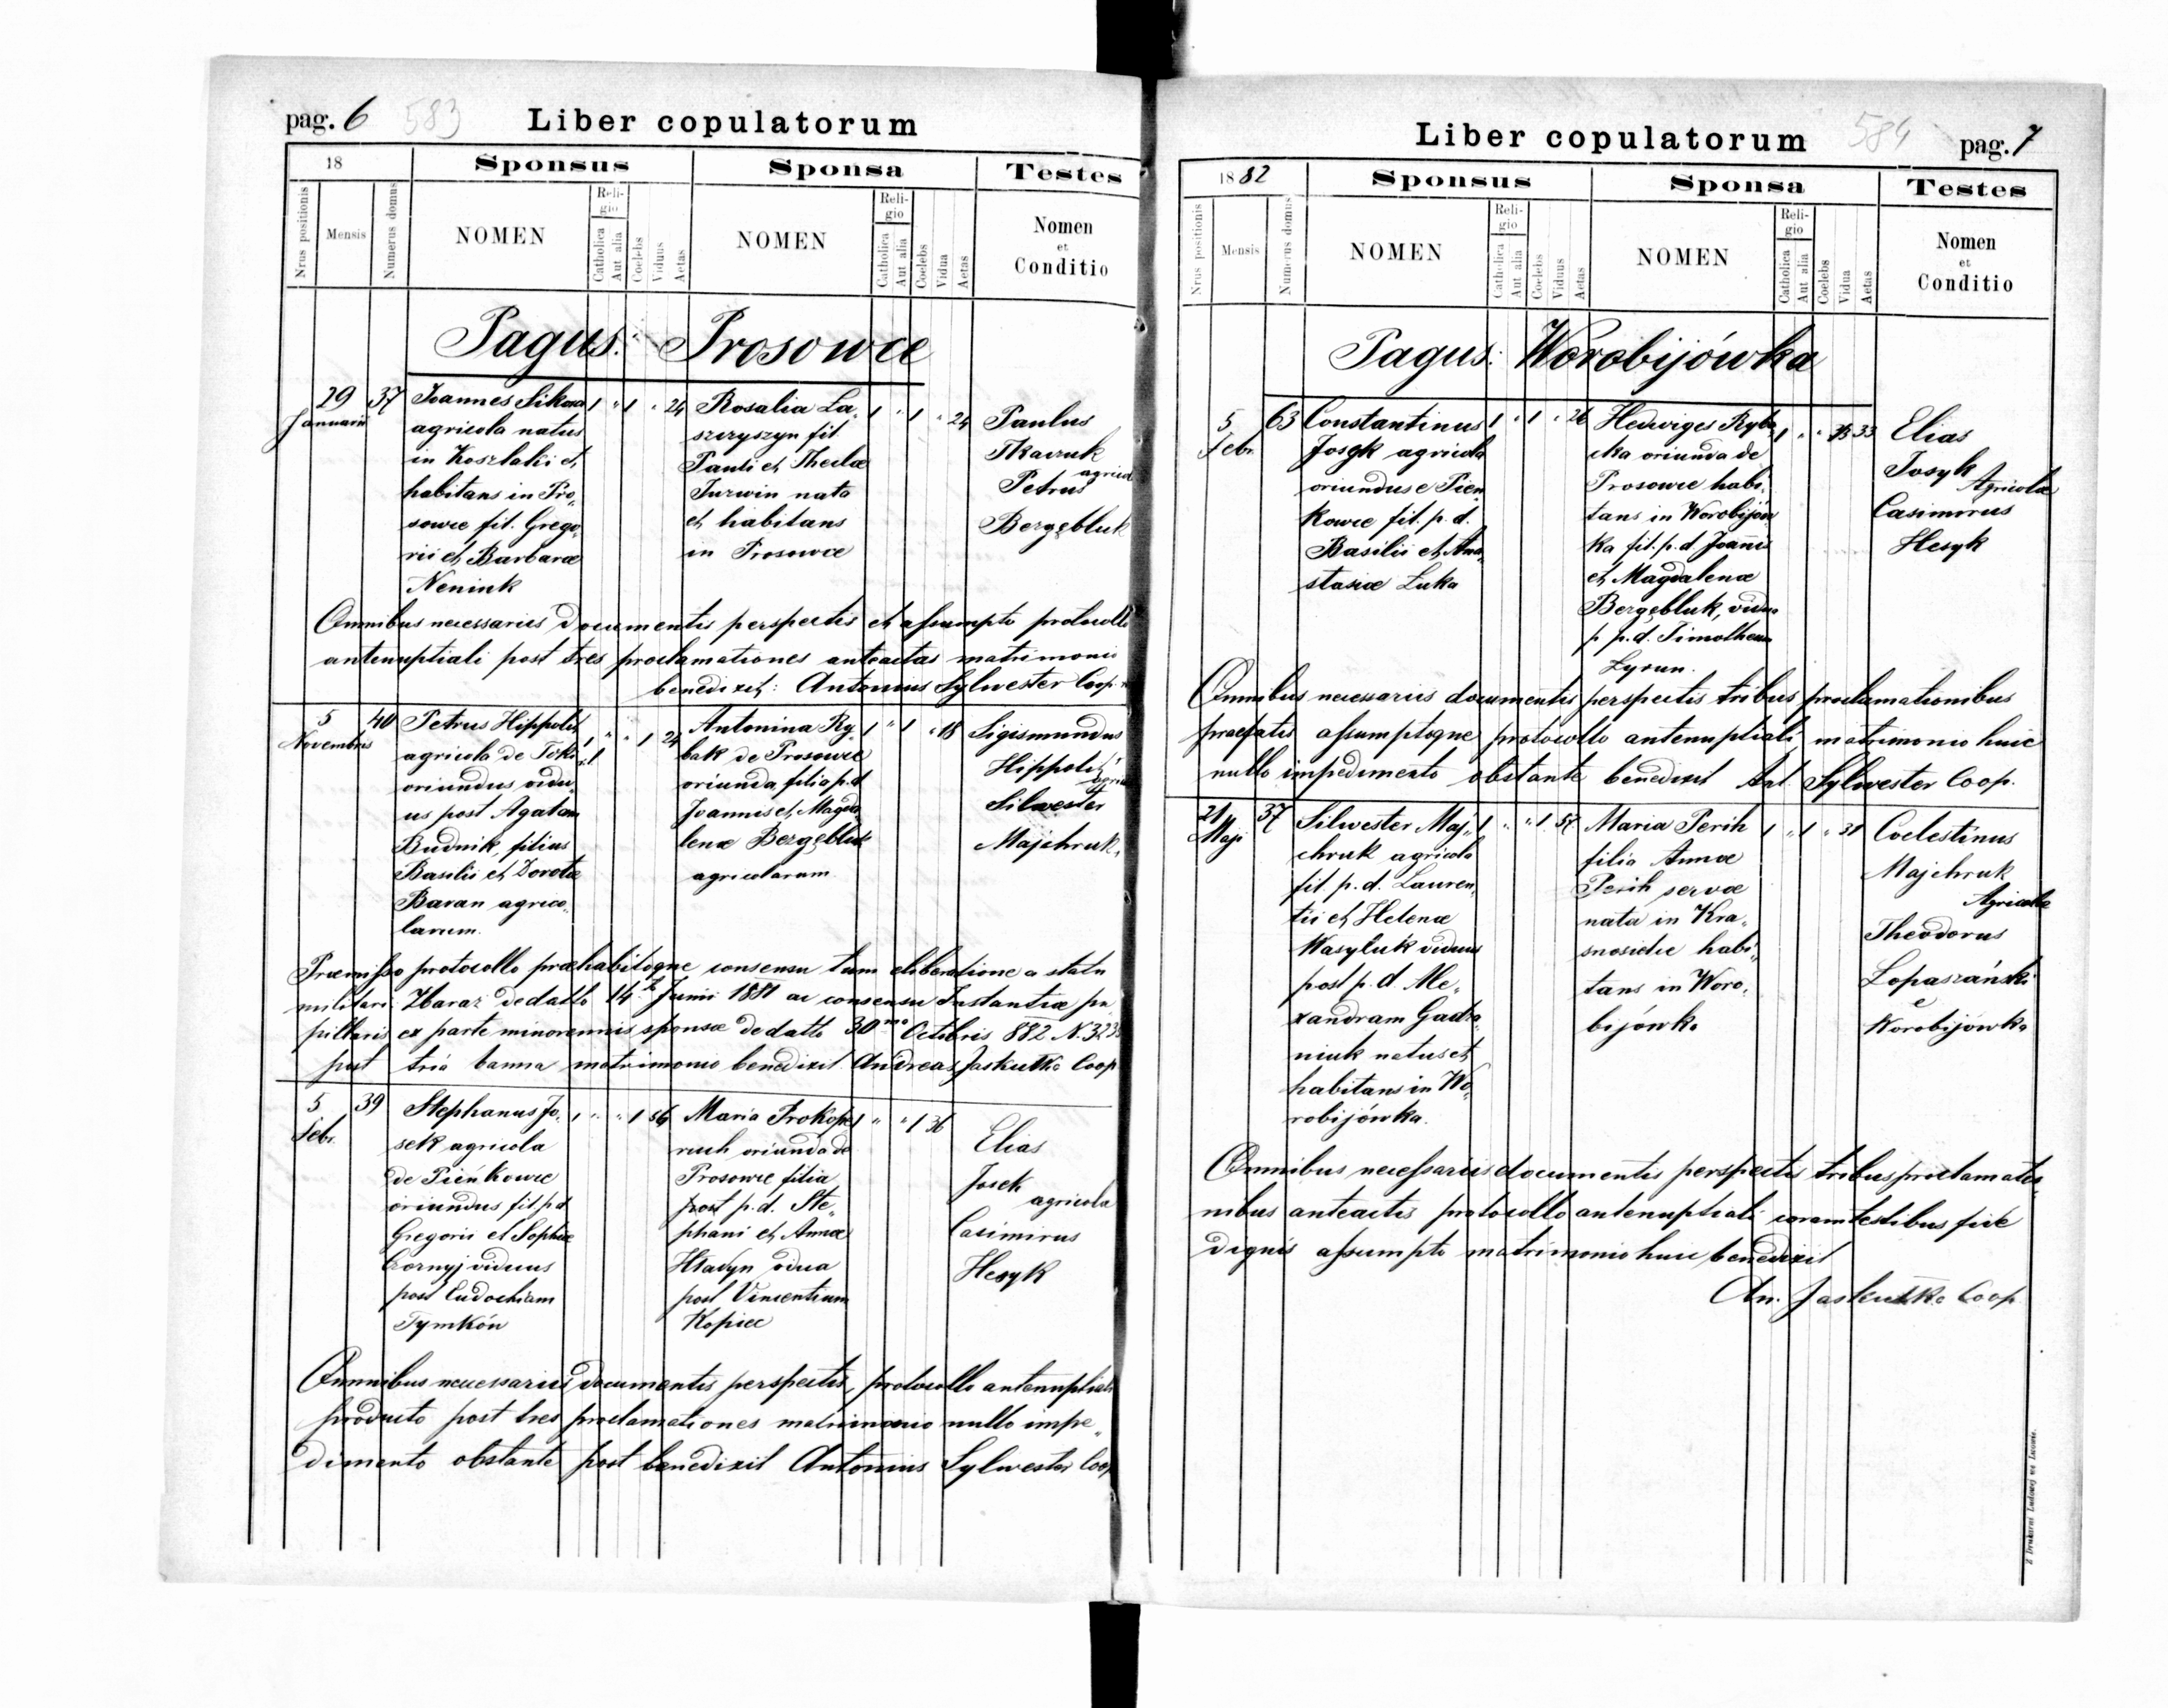 pag. 6 583 Liber copulatorum
18 Sponsus Sponsa Testes
Nrus positionis Mensis Numerus domus NOMEN Religio Catholica Aut alia Coelebs Viduus Aetas NOMEN Religio Catholica Aut alia Coelebs Vidua Aetas Nomen et Conditio
Pagus: Prosowce
29 Januarii 37
Joannes Sikora
agricola natus
in Koszlaki et
habitans in Pro„
sowce fil. Grego„
rii et Barbarae
Nenink
1 " 1 " 24
Rosalia La„
szczyszyn fil.
Pauli et Theclae
Jurwin nata
et habitans
in Prosowce
1 " 1 " 24
Paulus
Tkaczuk
Petrus agricol
Bergębluk
Omnibus necessariis documentis perspectis et assumpto protocollo
antenuptiali post tres proclamationes anteactas matrimonio
benedixit: Antonius Sylwester Coop.
5 Novembris 40
Petrus Hippolit
agricola de Toki
oriundus vidu„
us post Agatam
Budnik, filius
Basilii et Dorotae
Baran agrico„
larum.
1 " " 1 24
Antonina Ry„
bak de Prosowce
oriunda, filia p.d.
Joannis et Magda„
lenae Bergębluk
agricolarum
1 " 1 " 18
Sigismundus
Hippolit
agric
Silwester
Majchruk
Praemisso protocollo praehabitoque consensu tum eliberatione a statu
militari Zbaraz dedatto 14 Junii 1881 ac consensu Instantiae pu„
pillaris ex parte minorennis sponsae dedatto 30mo Octobris 882 N. 323
post tria banna matrimonio benedixit Andreas Jaskułka Coop
5 Febr. 39
Stephanus Jo„
sek agricola
de Pieńkowce
oriundus fil p.d
Gregorii et Sophiae
Czornyj viduus
post Eudochiam
Tymków
1 " " 1 56
Maria Prokope
ruch oriunda de
Prosowce filia
post p.d. Ste„
phani et Annae
Hladyn vidua
post Vincentium
Kopiec
1 " " 1 36
Elias
Josek
agricola
Casimirus
Hesyk
Omnibus necessariis documentis perspectis, protocollo antenuptiali
producto post tres proclamationes matrimonio nullo impe„
dimento obstante post benedixit Antonius Sylwester Coop
Liber copulatorum 584 pag. 7
1882 Sponsus Sponsa Testes
Nrus positionis Mensis Numerus domus NOMEN Religio Catholica Aut alia Coelebs Viduus Aetas NOMEN Religio Catholica Aut alia Coelebs Vidua Aetas Nomen et Conditio
Pagus: Worobijówka
5 Febr. 63
Constantinus
Josyk agricola
oriundus e Pien
kowce fil. p.d.
Basilii et Ana„
stasiae Luka
1 " 1 " 26
Hedwiges Ryba
cka oriunda de
Prosowce habi„
tans in Worobijów
ka fil. p.d Joannis
et Magdalenae
Bergębluk, vidua
p p.d. Timotheum
Zyrun.
1 " " 33
Elias
Josyk
Agricolae
Casimirus
Hesyk
Omnibus necessariis documentis perspectis tribus proclamationibus
praefatis assumptoque protocollo antenuptiali matrimonio huic
nullo impedimento obstante benedixit Ant Sylwester Coop.
21 Maji 37
Silwester Maj„
chruk agricola
fil. p.d. Lauren„
tii et Helenae
Wasyluk viduus
post p.d Ale„
xandram Gadza„
niuk natus et
habitans in Wo„
robijówka.
1 " " 1 57
Maria Perih
filia Annae
Perih servae
nata in Kra„
snosielce habi„
tans in Woro„
bijówka
1 " 1 " 31
Coelestinus
Majchruk
Agricolae
Theodorus
Lopaszański
e
Worobijówka
Omnibus necessariis documentis perspectis tribus proclamatio„
nibus anteactis protocollo antenuptiali coram testibus fide
dignis assumpto matrimonio huic benedixit
An. Jaskułka Coop
Z Drukarni Ludowej we Lwowie.